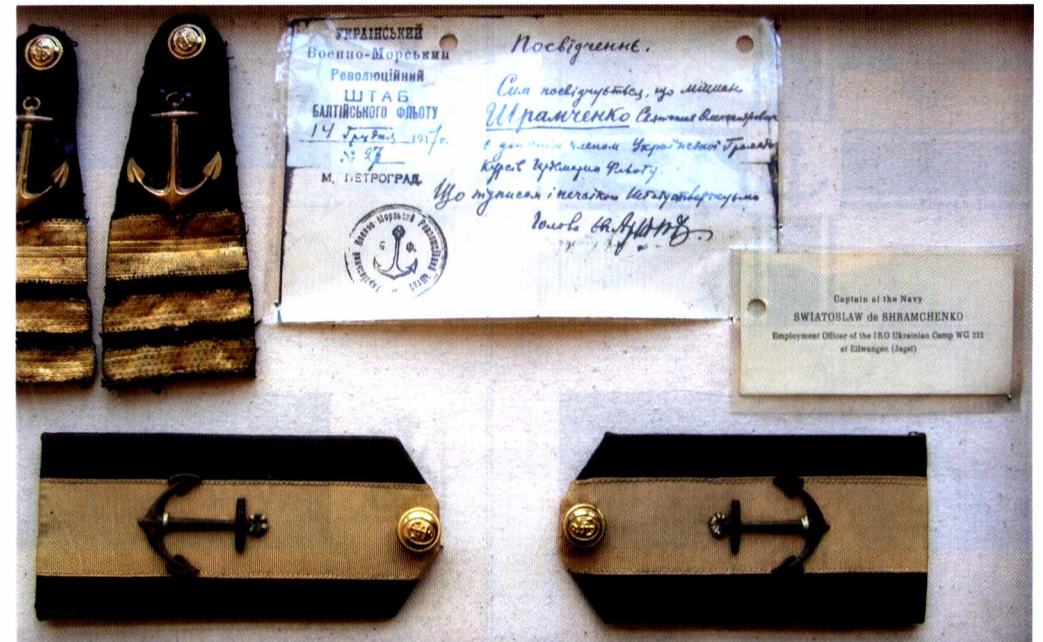 УКРАЇНСЬКИЙ
Военно-Морський
Революційний
ШТАБ
БАЛТІЙСЬКОГО ФЛЬОТУ
14 Грудня 1917р.
№ 97
М. ПЕТРОГРАД.
Посвідченнє.
Сим посвідчується, що мічман
Шрамченко Святослав Олександрович
є дійсним членом Української Громади
Що підписом і печаткою Штабу стверджується
Голова
Captain of the Navy
SWIATOSLAW de SHRAMCHENKO
Employment Officer of the IRO Ukrainian Camp WG 222
at Ellwangen (Jagst)